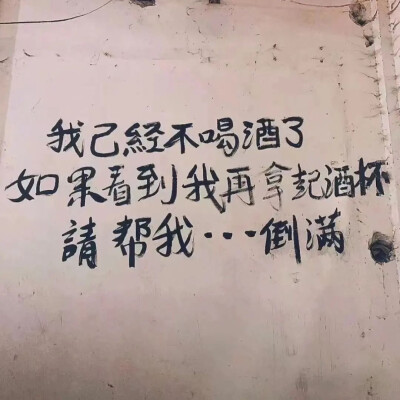 我已経不喝酒了
如果看到我再拿起酒杯
請帮我···倒满